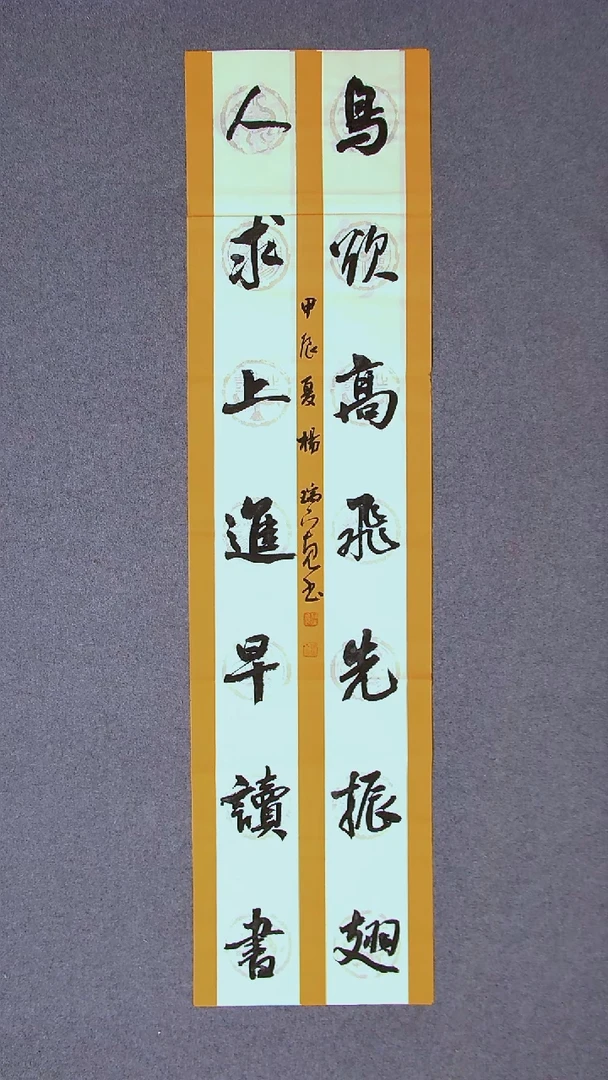 鳥欲高飛先振翅
人求上進早讀書
甲辰夏楊瑞